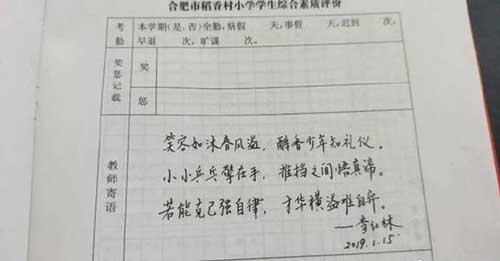 合肥市稻香村小学学生综合素质评价
考勤
本学期(是、否)全勤,病假 天,事假 天,迟到 次,
早退 次,旷课 次。
奖惩记载
奖
惩
教师寄语
笑容如沐春风溢,醇香少年知礼仪。
小小乒乓擎在手,推挡之间悟真谛。
若能克己强自律,才华横溢难自弃。
——李红林
2019.1.15